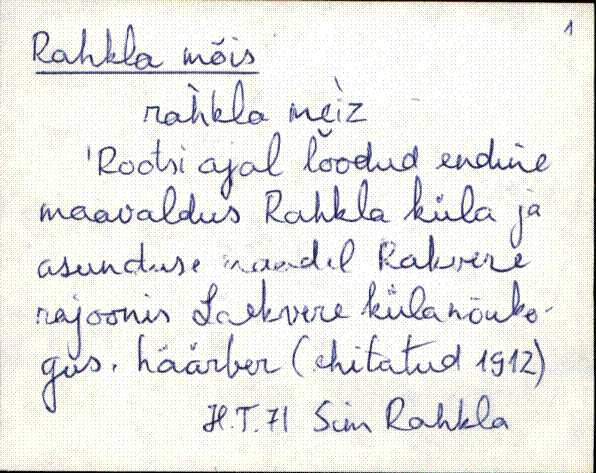 1
Rahkla mõis
rah̀kla mèiz
'Rootsi ajal loodud endine
maavaldus Rahkla küla ja
asunduse maadel Rakvere
rajoonis Laekvere külanõuko-
gus. häärber (ehitatud 1912)
H.T. 71 Sim Rahkla